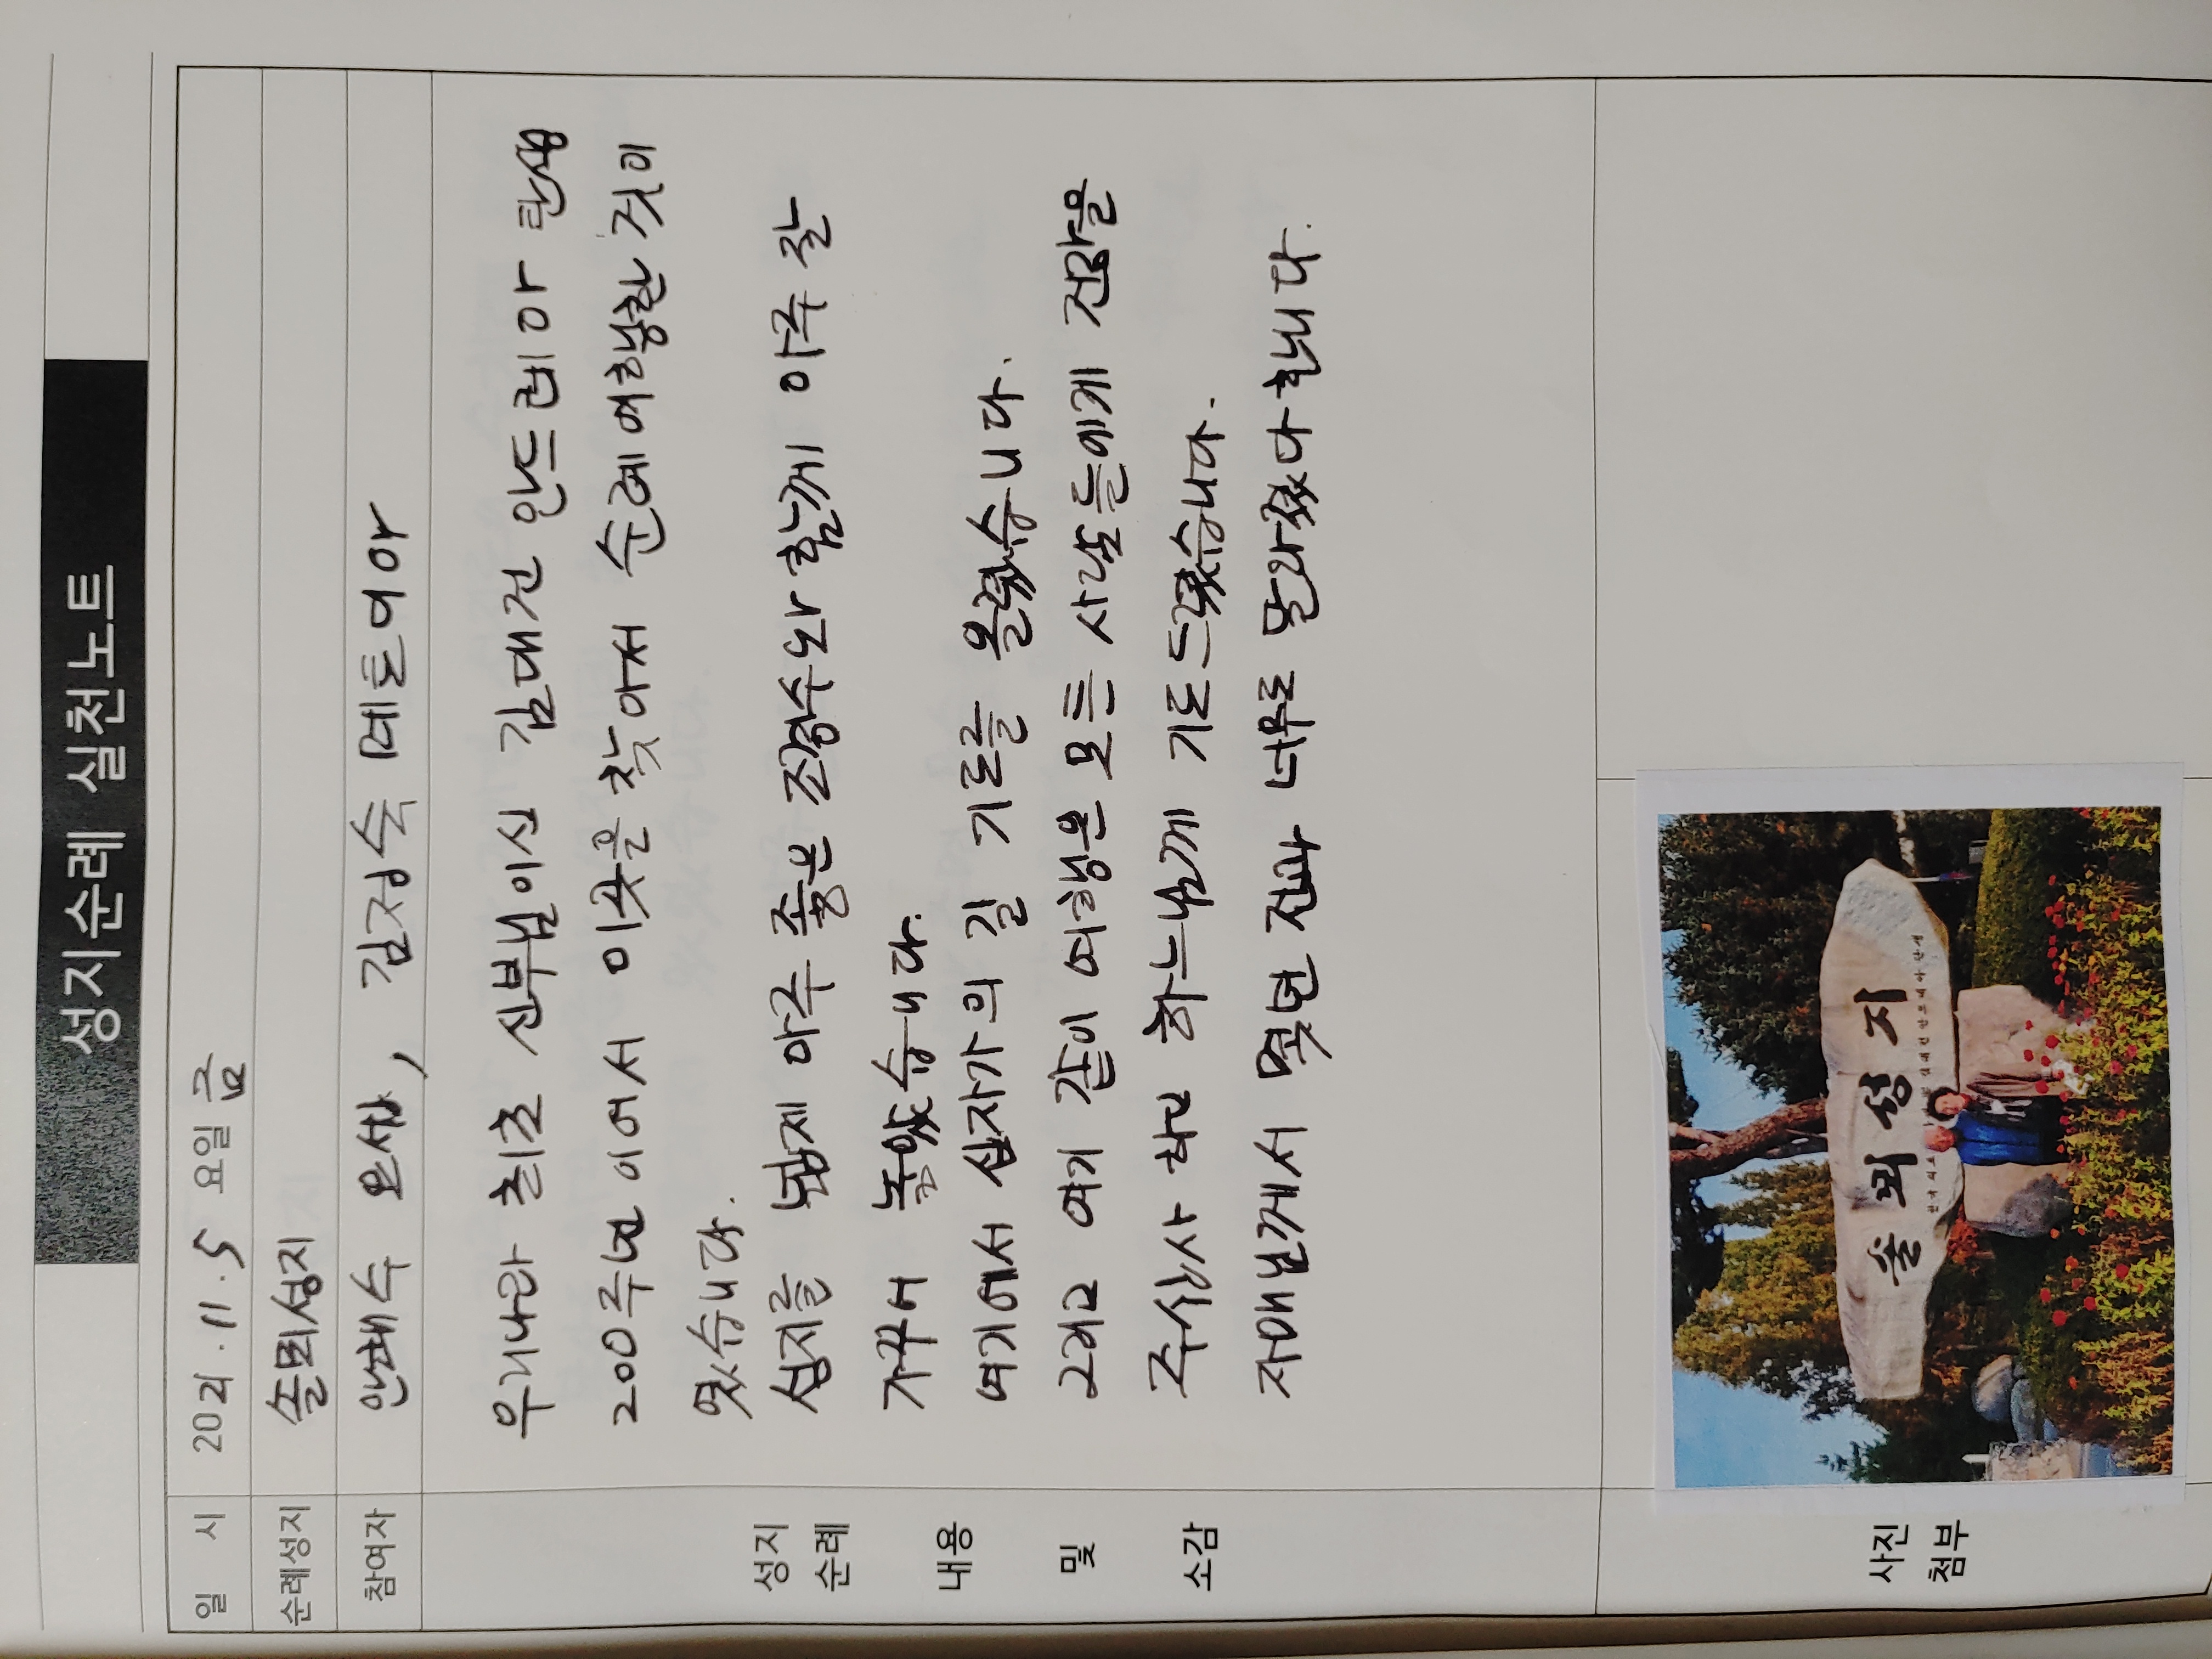 성지순례 실천노트
일 시 2021.11.5 요일 금
순례성지 솔뫼성지
참여자 안래수 요셉, 김정숙 떼트여아
우리나라 최초 신부님이신 김대건 안드레아 탄생
200주년 이어서 이곳을 찾아서 순례여행한 것이
였습니다.
성지를 넓게 아주 좋은 조경수와 함께 아주 잘
가꾸어 놓았습니다.
여기에서 십자가의 길 기도를 올렸습니다.
그리고 여기 같이 여행온 모든 사람들에게 건강을
주십사 하고 하느님께 기도드렸습니다.
자매님께서 몇년 전과 너무도 달라졌다 합니다.
성지
순례
내용
및
소감
사진
첨부
솔뫼성지